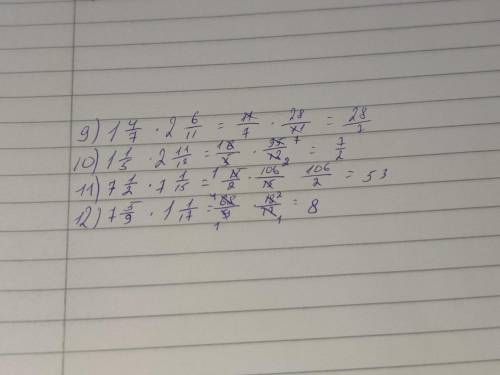 9) 1 4/7 · 2 6/11 = 11/7 · 28/11 = 28/7
10) 1 1/5 · 2 11/12 = 18/5 · 35/12 = 7/2
11) 7 1/2 · 7 1/15 = 15/2 · 106/15 = 106/2 = 53
12) 7 5/9 · 1 1/17 = 68/9 · 18/17 = 8